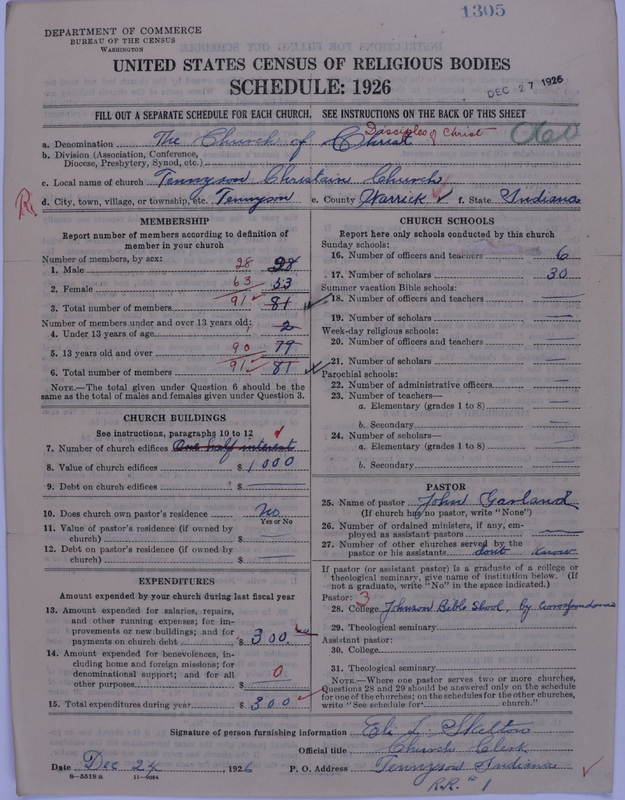 1305
DEPARTMENT OF COMMERCE
BUREAU OF THE CENSUS
WASHINGTON
UNITED STATES CENSUS OF RELIGIOUS BODIES
SCHEDULE: 1926
DEC 27 1926
FILL OUT A SEPARATE SCHEDULE FOR EACH CHURCH. SEE INSTRUCTIONS ON THE BACK OF THIS SHEET
Disciples of Christ
a. Denomination The Church of Christ
b. Division (Association, Conference,
Diocese, Presbytery, Synod, etc.)
c. Local name of church Tennyson Christain Church
d. City, town, village, or township, etc. Tennyson e. County Warrick f. State Indiana
MEMBERSHIP
Report number of members according to definition of
member in your church
Number of members, by sex:
1. Male 28 28
2. Female 63 53
3. Total number of members 91 81
Number of members under and over 13 years old:
4. Under 13 years of age 2
5. 13 years old and over 90 79
6. Total number of members 91 81
NOTE.—The total given under Question 6 should be the
same as the total of males and females given under Question 3.
CHURCH BUILDINGS
See instructions, paragraphs 10 to 12
7. Number of church edifices One half interest
8. Value of church edifices $1000
9. Debt on church edifices $
10. Does church own pastor's residence No
Yes or No
11. Value of pastor's residence (if owned by
church) $
12. Debt on pastor's residence (if owned by
church) $
EXPENDITURES
Amount expended by your church during last fiscal year
13. Amount expended for salaries, repairs,
and other running expenses; for im-
provements or new buildings; and for
payments on church debt $300.
14. Amount expended for benevolences, in-
cluding home and foreign missions; for
denominational support; and for all
other purposes $ 0
15. Total expenditures during year $300
CHURCH SCHOOLS
Report here only schools conducted by this church
Sunday schools:
16. Number of officers and teachers 6
17. Number of scholars 30
Summer vacation Bible schools:
18. Number of officers and teachers
19. Number of scholars
Week-day religious schools:
20. Number of officers and teachers
21. Number of scholars
Parochial schools:
22. Number of administrative officers
23. Number of teachers—
a. Elementary (grades 1 to 8)
b. Secondary
24. Number of scholars—
a. Elementary (grades 1 to 8)
b. Secondary
PASTOR
25. Name of pastor John Garland
(If church has no pastor, write "None")
26. Number of ordained ministers, if any, em-
ployed as assistant pastors
27. Number of other churches served by the
pastor or his assistants dont know
If pastor (or assistant pastor) is a graduate of a college or
theological seminary, give name of institution below. (If
not a graduate, write "No" in the space indicated.)
Pastor: 3
28. College Johnson Bible Shool, by
29. Theological seminary
Assistant pastor:
30. College
31. Theological seminary
NOTE.—Where one pastor serves two or more churches,
Questions 28 and 29 should be answered only on the schedule
for one of the churches; on the schedules for the other churches,
write "See schedule for church."
Signature of person furnishing information Eli L. Skelton
Official title Church Clerk
Date Dec 24, 1926 P. O. Address Tennyson Indiana
8—5518 a 11—9084
R.R. # 1